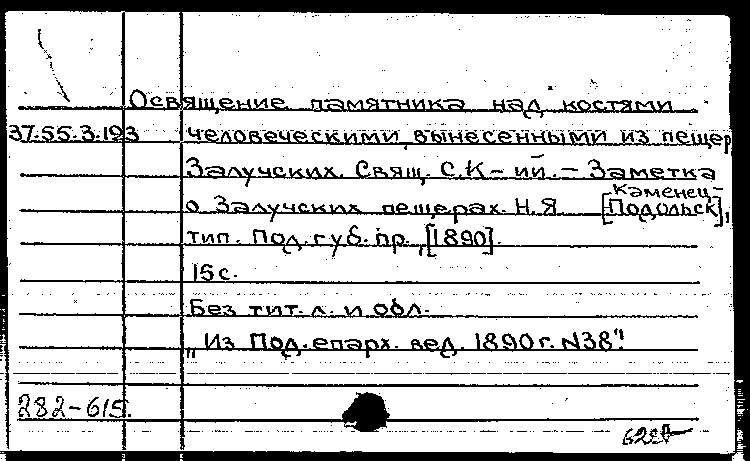 Освящение памятника над костями
37.55.3.193 человеческими, вынесенными из пещер
Залучских. Свящ. С.К-ий. - Заметка
о Залучских пещерах. Н.Я [Каменец-
Подольск],
тип. Под. губ. пр., [1890].
15 с.
Без тит. л. и обл.
„Из Под. епарх. вед. 1890 г. N38".
282-615.